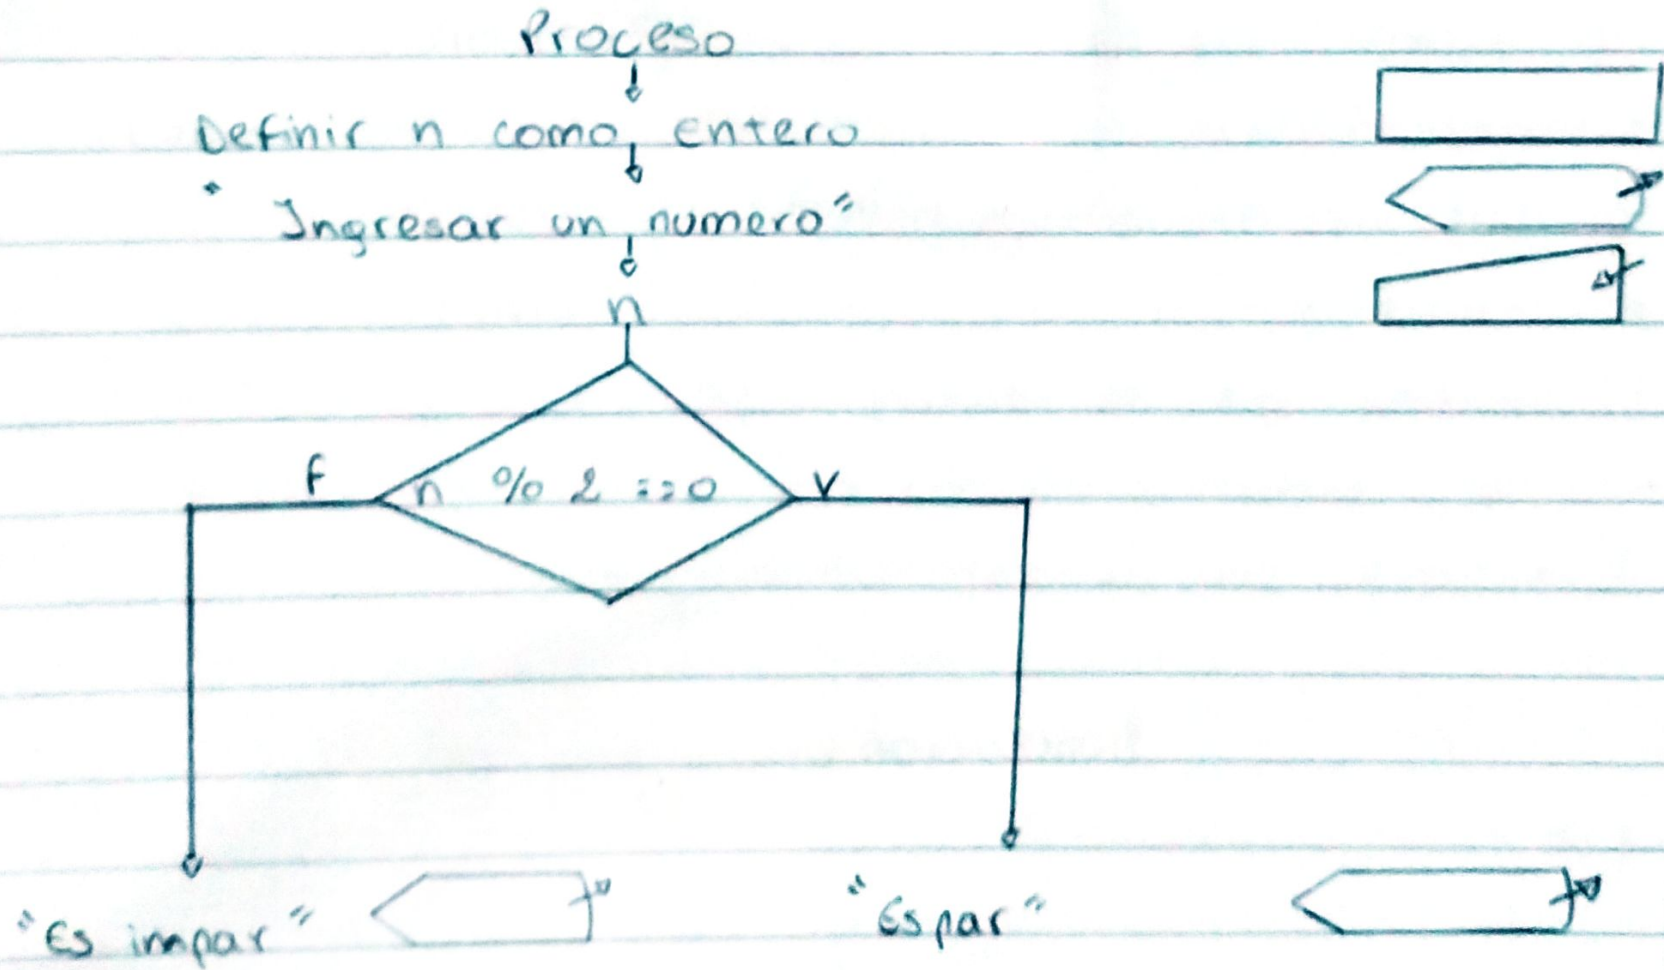 Proceso
Definir n como entero
"Ingresar un numero"
n
F n % 2 == 0 V
"Es impar" "Es par"